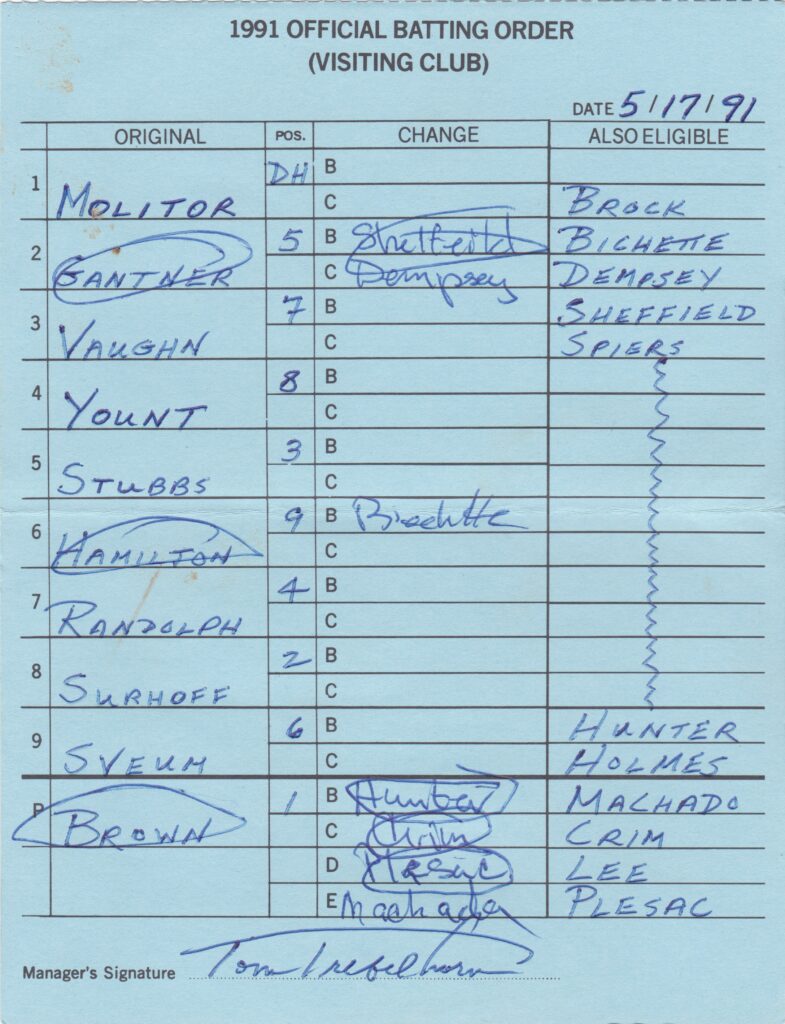 1991 OFFICIAL BATTING ORDER
(VISITING CLUB)
DATE 5/17/91
ORIGINAL POS. CHANGE ALSO ELIGIBLE
1 MOLITOR DH B
C BROCK
2 GANTNER 5 B Sheffeild BICHETTE
C Dempsey DEMPSEY
3 VAUGHN 7 B SHEFFIELD
C SPIERS
4 YOUNT 8 B
C
5 STUBBS 3 B
C
6 HAMILTON 9 B Bichette
C
7 RANDOLPH 4 B
C
8 SURHOFF 2 B
C
9 SVEUM 6 B HUNTER
C HOLMES
P BROWN 1 B Hunter MACHADO
C Crim CRIM
D Plesac LEE
E Machado PLESAC
Manager's Signature Tom Trebelhorn